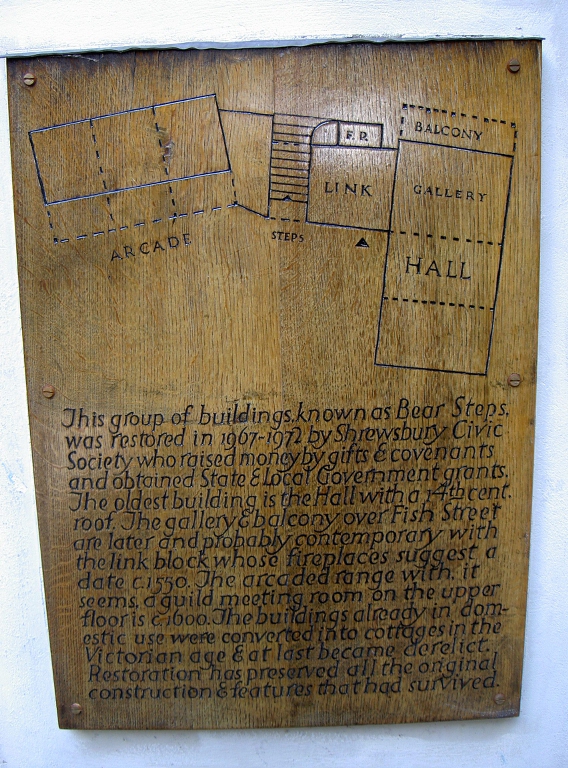 F.P.
BALCONY
LINK
GALLERY
ARCADE
STEPS
HALL
This group of buildings, known as Bear Steps,
was restored in 1967-1972 by Shrewsbury Civic
Society who raised money by gifts & covenants
and obtained State & Local Government grants.
The oldest building is the Hall with a 14th cent.
roof. The gallery & balcony over Fish Street
are later and probably contemporary with
the link block whose fireplaces suggest a
date c.1550. The arcaded range with, it
seems, a guild meeting room on the upper
floor is c.1600. The buildings already in dom-
estic use were converted into cottages in the
Victorian age & at last became derelict.
Restoration has preserved all the original
construction & features that had survived.